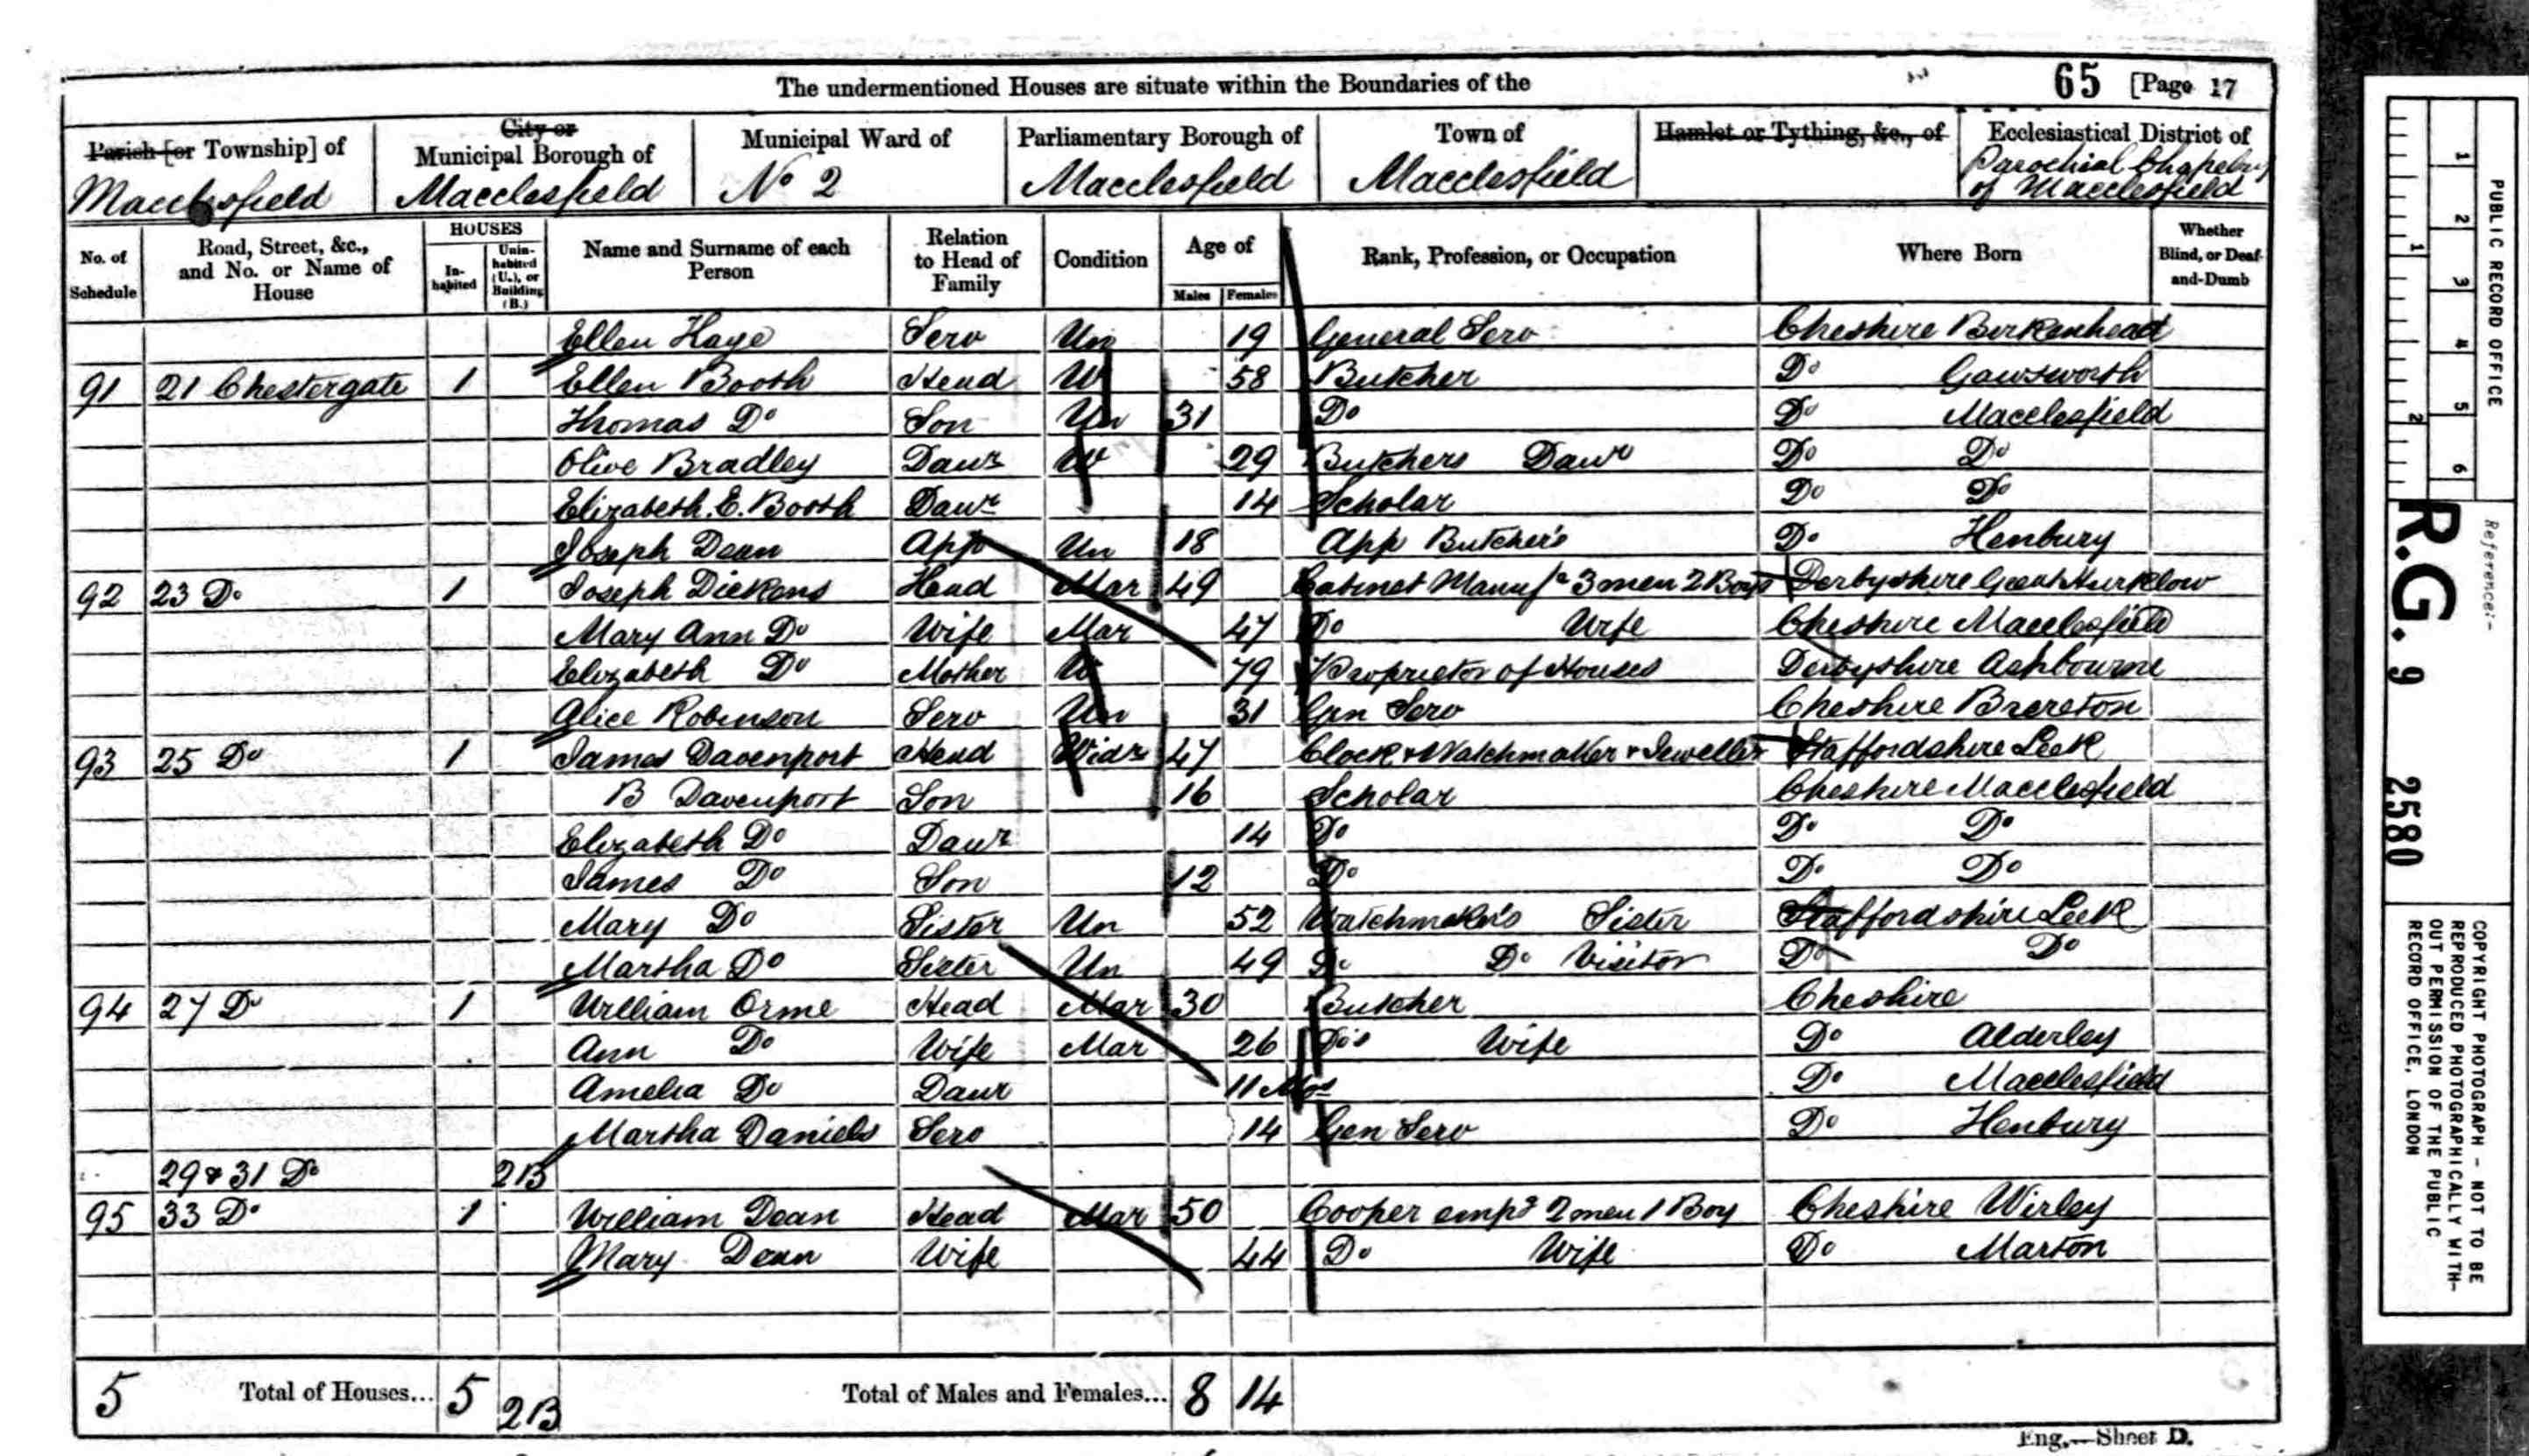 The undermentioned Houses are situate within the Boundaries of the
65 [Page 17
Parish [or Township] of
Macclesfield
City or
Municipal Borough of
Macclesfield
Municipal Ward of
No 2
Parliamentary Borough of
Macclesfield
Town of
Macclesfield
Hamlet or Tything, &c., of
Ecclesiastical District of
Parochial Chapelry
of Macclesfield
No. of Schedule
Road, Street, &c., and No. or Name of House
HOUSES
In-habited
Unin-habited (U.), or Building (B.)
Name and Surname of each Person
Relation to Head of Family
Condition
Age of
Males Females
Rank, Profession, or Occupation
Where Born
Whether Blind, or Deaf-and-Dumb
Ellen Haye Serv Un 19 General Serv Cheshire Berkenhead
91 21 Chestergate 1 Ellen Booth Head W 58 Butcher Do Gawsworth
Thomas Do Son Un 31 Do Do Macclesfield
Olive Bradley Daur W 29 Butchers Daur Do Do
Elizabeth. E. Booth Daur 14 Scholar Do Do
Joseph Dean App Un 18 App Butcher's Do Henbury
92 23 Do 1 Joseph Dickens Head Mar 49 Cabinet Manufr 3 men 2 Boys Derbyshire Great Hucklow
Mary Ann Do Wife Mar 47 Do Wife Cheshire Macclesfield
Elizabeth Do Mother W 79 Proprietor of Houses Derbyshire Ashbourne
Alice Robinson Serv Un 31 Gen Serv Cheshire Brereton
93 25 Do 1 James Davenport Head Widr 47 Clock & Watchmaker & Jeweller Staffordshire Leek
B Davenport Son 16 Scholar Cheshire Macclesfield
Elizabeth Do Daur 14 Do Do Do
James Do Son 12 Do Do Do
Mary Do Sister Un 52 Watchmaker's Sister Staffordshire Leek
Martha Do Sister Un 49 Do Do Visitor Do Do
94 27 Do 1 William Orme Head Mar 30 Butcher Cheshire
Ann Do Wife Mar 26 Do's Wife Do Alderley
Amelia Do Daur 11 Mos Do Macclesfield
Martha Daniels Serv 14 Gen Serv Do Henbury
29 & 31 Do 2B
95 33 Do 1 William Dean Head Mar 50 Cooper empg 2 men 1 Boy Cheshire Wirley
Mary Dean Wife 44 Do Wife Do Marton
5 Total of Houses... 5 2B Total of Males and Females... 8 14
Eng.—Sheet D.
PUBLIC RECORD OFFICE
1 2 3 4 5 6
1 2
Reference:-
R.G. 9 2580
COPYRIGHT PHOTOGRAPH - NOT TO BE
REPRODUCED PHOTOGRAPHICALLY WITH-
OUT PERMISSION OF THE PUBLIC
RECORD OFFICE, LONDON